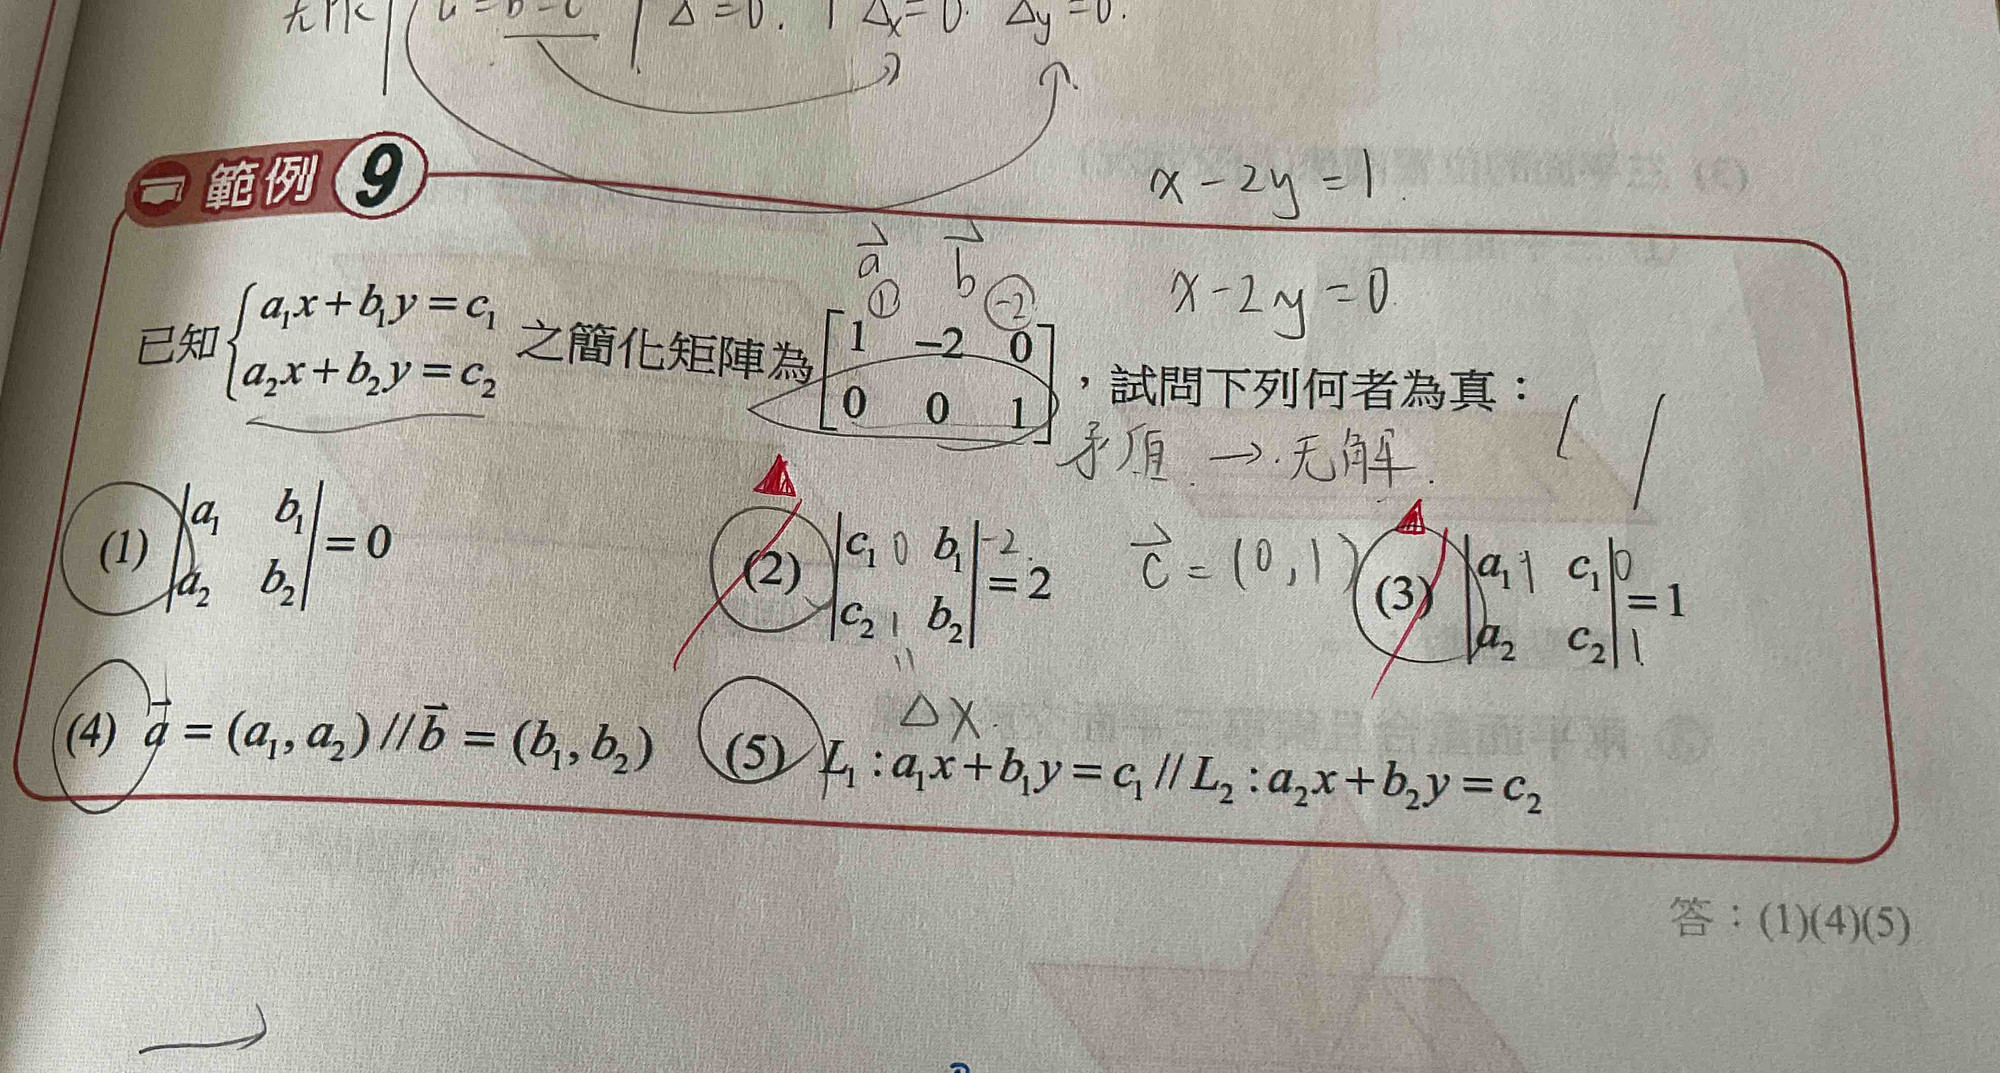 Δ=0. Δx=0. Δy=0.
範例 9
x-2y=1.
a⃗ b⃗
① -2
x-2y=0.
已知 { a₁x+b₁y=c₁ a₂x+b₂y=c₂ 之簡化矩陣為 [ 1 -2 0 0 0 1 ],試問下列何者為真:
矛盾 → 无解.
(1) |a₁ b₁ a₂ b₂| = 0
(2) |c₁ b₁ c₂ b₂| = 2
0 -2. 1
c⃗ = (0,1)
(3) |a₁ c₁ a₂ c₂| = 1
1 0 1
= Δx.
(4) a⃗ = (a₁, a₂) // b⃗ = (b₁, b₂)
(5) L₁:a₁x+b₁y=c₁ // L₂:a₂x+b₂y=c₂
答:(1)(4)(5)